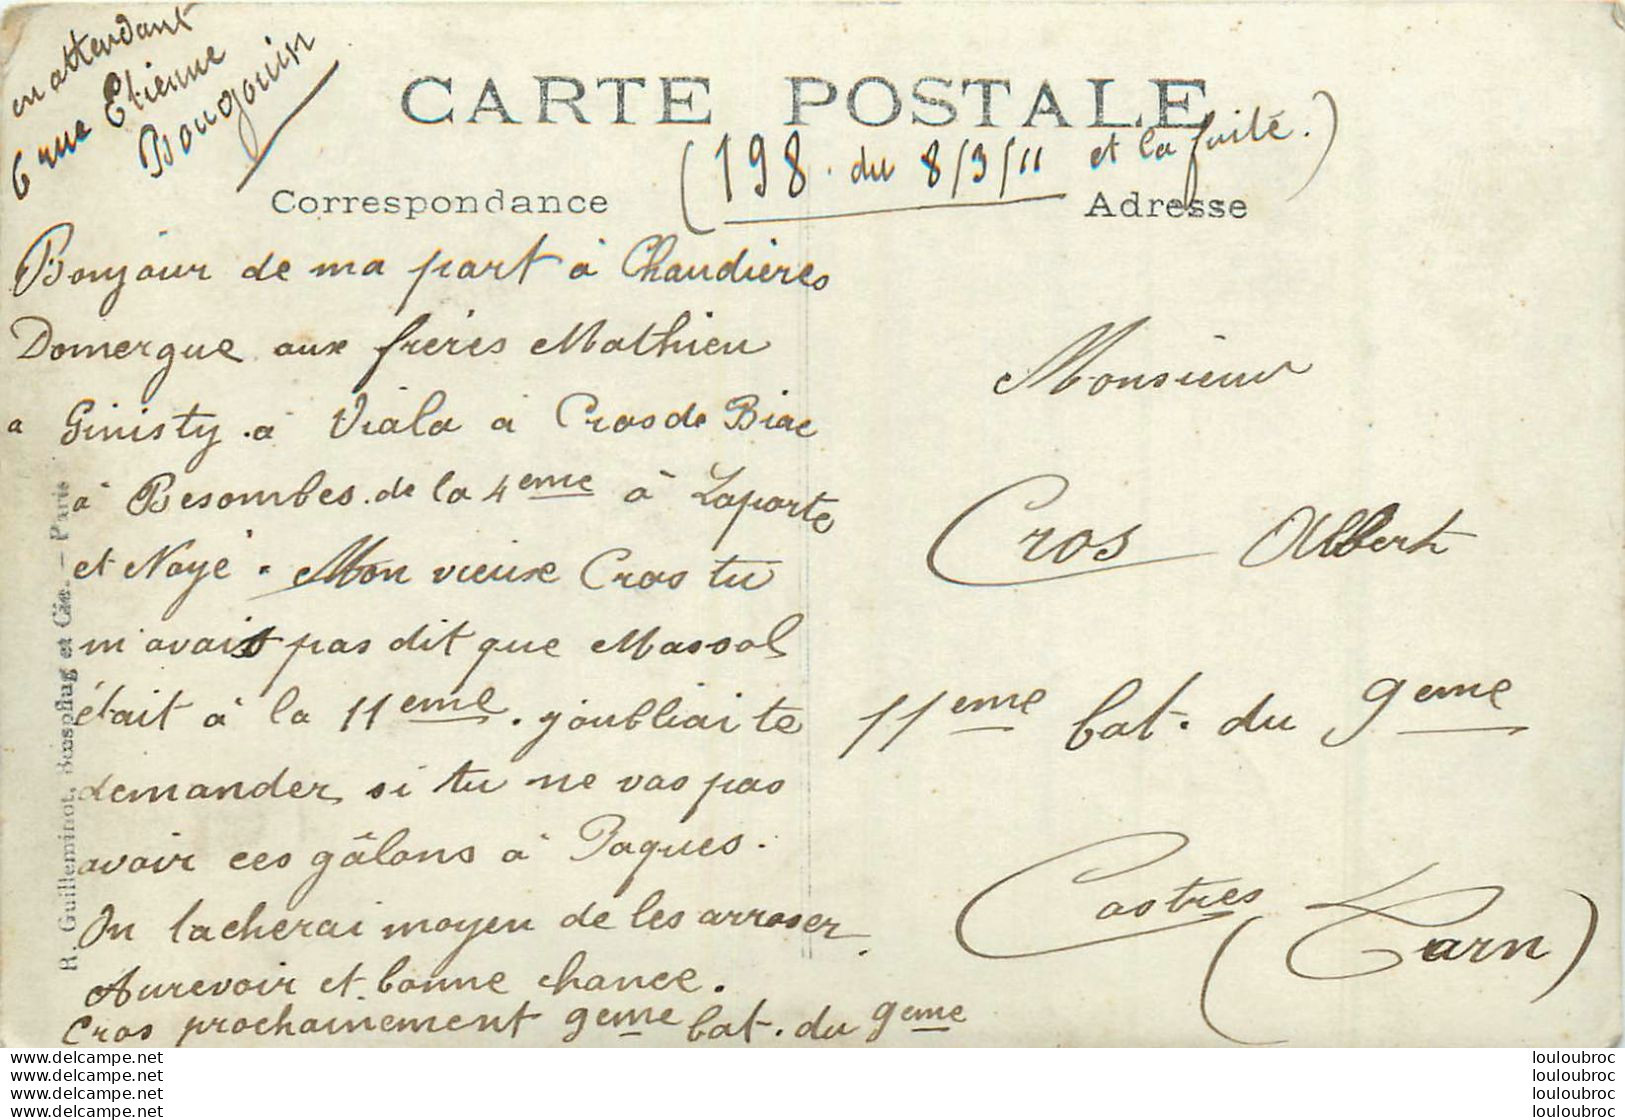 en attendant
6 rue Etienne
Bougouin
CARTE POSTALE
(198. du 8/3/11 et la fuite.)
Correspondance
Adresse
Bonjour de ma part à Chaudières
Domergue aux frères Mathieu
a Ginisty. à Viala à Cros de Biac
à Besombes. de la 4eme à Laporte
et Noyé. Mon vieux Cros tu
m'avais pas dit que Massol
était à la 11eme. j'oubliai te
demander si tu ne vas pas
avoir ces gâlons à Paques.
On tacherai moyen de les arroser.
Aurevoir et bonne chance.
Cros prochainement 9eme bat. du 9eme
Monsieur
Cros Albert
11eme bat. du 9eme
Castres
(Tarn)
R. Guilleminot, Bœspflug et Cie. – Paris
www.delcampe.net
www.delcampe.net
www.delcampe.net
www.delcampe.net
louloubroc
louloubroc
louloubroc
louloubroc